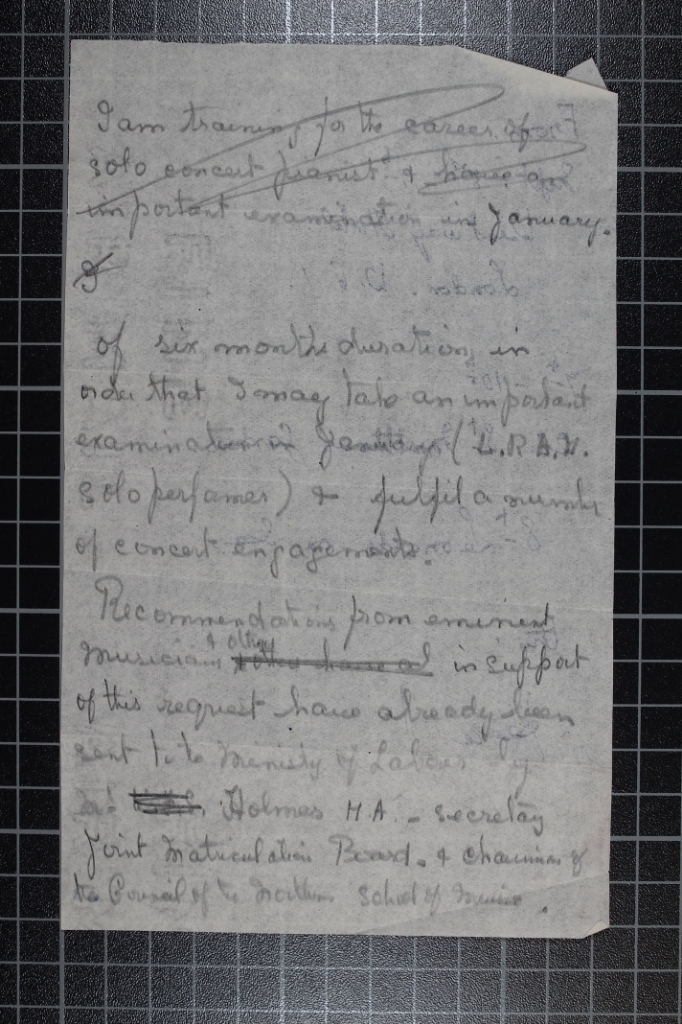 I am training for the career of
solo concert pianist & have an
important examination in January.
I
of six months duration, in
order that I may take an important
examination in January (L.R.A.M.
solo performer) & fulfil a number
of concert engagements.
Recommendations from eminent
musicians & others in support
of this request have already been
sent to the Ministry of Labour by
Mr Holmes M.A. - secretary
Joint Matriculation Board. & chairman of
the Council of the Northern School of Music.